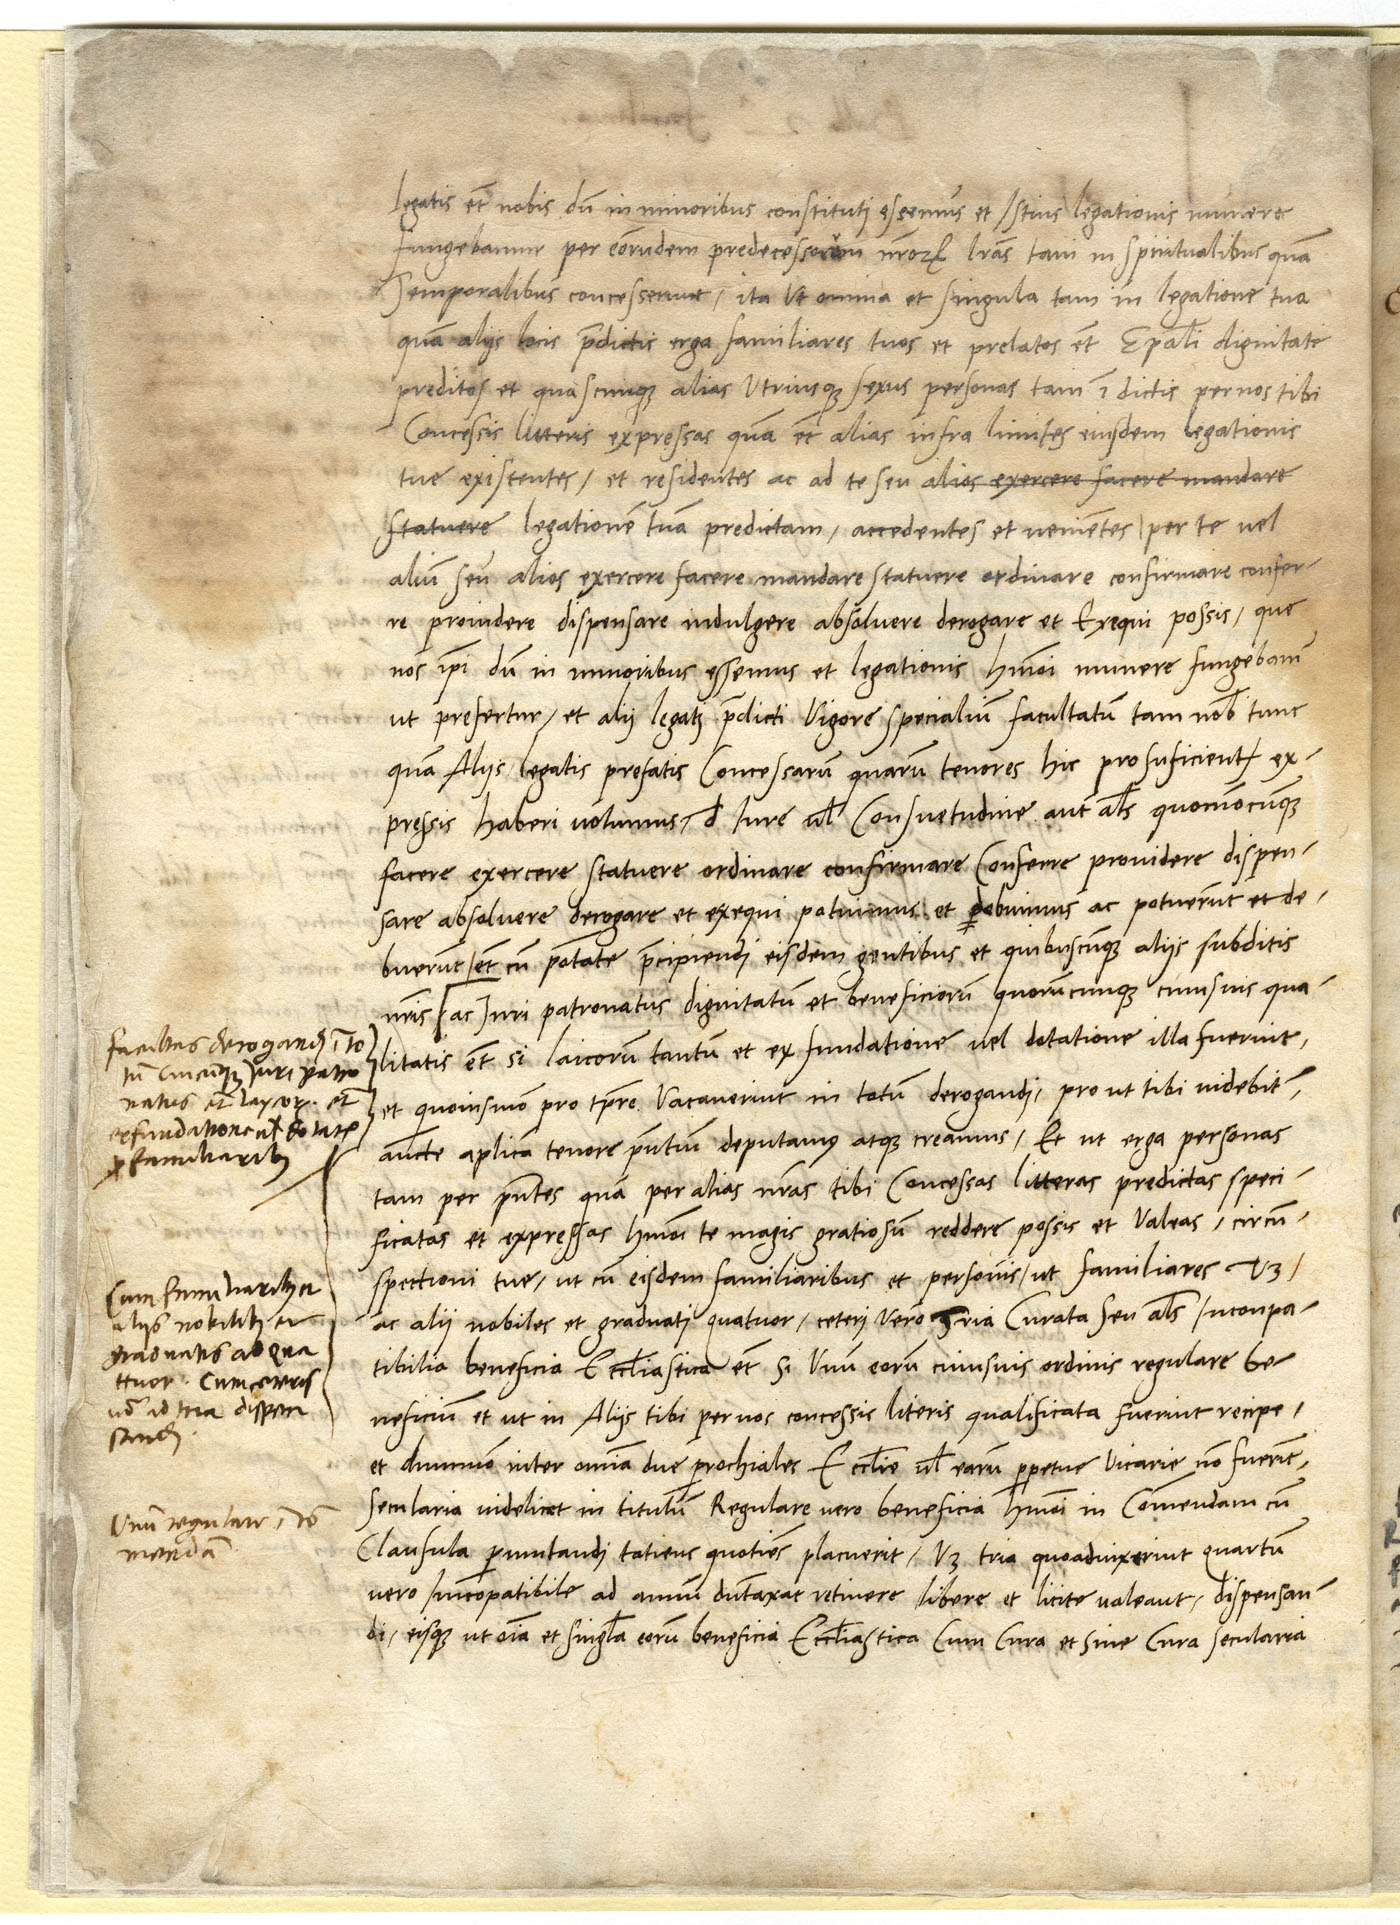 legatis et̄ nobis dū in minoribus constituti essemus et Istius legationis munere
fungebamur per eorundem predecessorum nr̄oꝝ lr̄as tam in spiritualibus quā
Temporalibus concesserunt / ita Vt omnia et singula tam in legatione tua
quā alijs locis p̄dictis erga familiares tuos et prelatos et̄ Ep̄ali dignitate
preditos et quascunqꝫ alias Vtriusqꝫ sexus personas tam ī dictis per nos tibi
Concessis litteris expressas quā et̄ alias infra limites eiusdem legationis
tue existentes / et residentes ac ad te seu alios exercere facere mandare
statuere legationē tuā predictam / accedentes et venientes per te vel
aliū seu alios exercere facere mandare statuere ordinare confirmare confer-
re prouidere dispensare indulgere absoluere derogare et Exequi possis / que
nos ip̄i dū in minoribus essemus et legationis hm̄oi munere fungebam̄
ut prefertur / et alij legati p̄dicti Vigore specialiū facultatū tam nob̄ tunc
quā Alijs legatis prefatis Concessarū quarū tenores hic pro suficientꝭ ex-
pressis haberi volumus / d Iure ul̄ Consuetudine aut al̄s quomōcunqꝫ
facere exercere statuere ordinare confirmare Conferre prouidere dispen-
sare absoluere derogare et exequi potuimus et debuimus ac potuerūt et de-
buerūt / et̄ cū p̄otate p̄cipiendi eisdem gentibus et quibuscūqꝫ alijs subditis
nr̄is [ac Iuri patronatus dignitatū et beneficiorū quorūcunqꝫ cuiusuis qua-
litatis et̄ si laicorū tantū et ex fundatione vel dotatione illa fuerint,
et quouismō pro tp̄re Vacauerint in totū derogandi / pro ut tibi videbit̄,
auct̄e aplica tenore p̄ntiū deputamꝰ atqꝫ creamus / Et ut erga personas
tam per p̄ntes quā per alias nr̄as tibi Concessas litteras predictas speci-
ficatas et expressas hm̄oi te magis gratiosū reddere possis et Valeas / circū-
spectioni tue / ut cū eisdem familiaribus et personis / ut familiares Vꝫ /
ac alij nobiles et graduati quatuor / ceteri Vero Tria Curata seu al̄s Inconpa-
tibilia beneficia Eccl̄iastica et̄ si Vnū eorū cuiusuis ordinis regulare be-
neficiū et ut in Alijs tibi per nos concessis literis qualificata fuerint recipe,
et dummō inter omīa due ꝑrochiales Eccl̄ie ul̄ earū ꝑpetue Vicarie nō fuerīt,
secularia videlicet in titulū Regulare vero beneficia hm̄oi in Comendam cū
Clausula ꝑmutandi totiens quotiēs placuerit / Vꝫ tria quoaduixerint quartū
vero Incōpatibile ad annū dūtaxat retinere libere et licite valeant / dispensan-
di / eisqꝫ ut oīa et singl̄a eorū beneficia Eccl̄iastica Cum Cura et sine Cura secularia
facultas derogandi ī to
tū cuicūqꝫ Juri patro
natus et̄ laycoꝝ. et̄
ex fundatione ul̄ dotatiōe
ꝓ familiaribꝫ
Cum familiaribꝫ et
alijs nobilibꝫ et
graduatis ad qua
ttuor. Cum ceteris
uō ad tria dispen
sandi
Vnū regulare ī cō
mendā